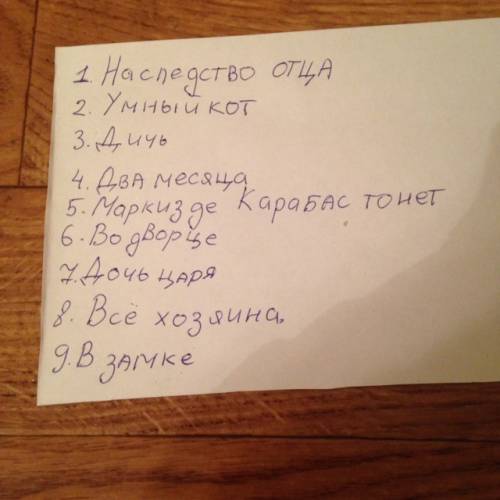 1. Наследство ОТЦА
2. Умный кот
3. Дичь
4. Два месяца
5. Маркиз де Карабас тонет
6. Во дворце
7. Дочь царя
8. Всё хозяина.
9. В замке